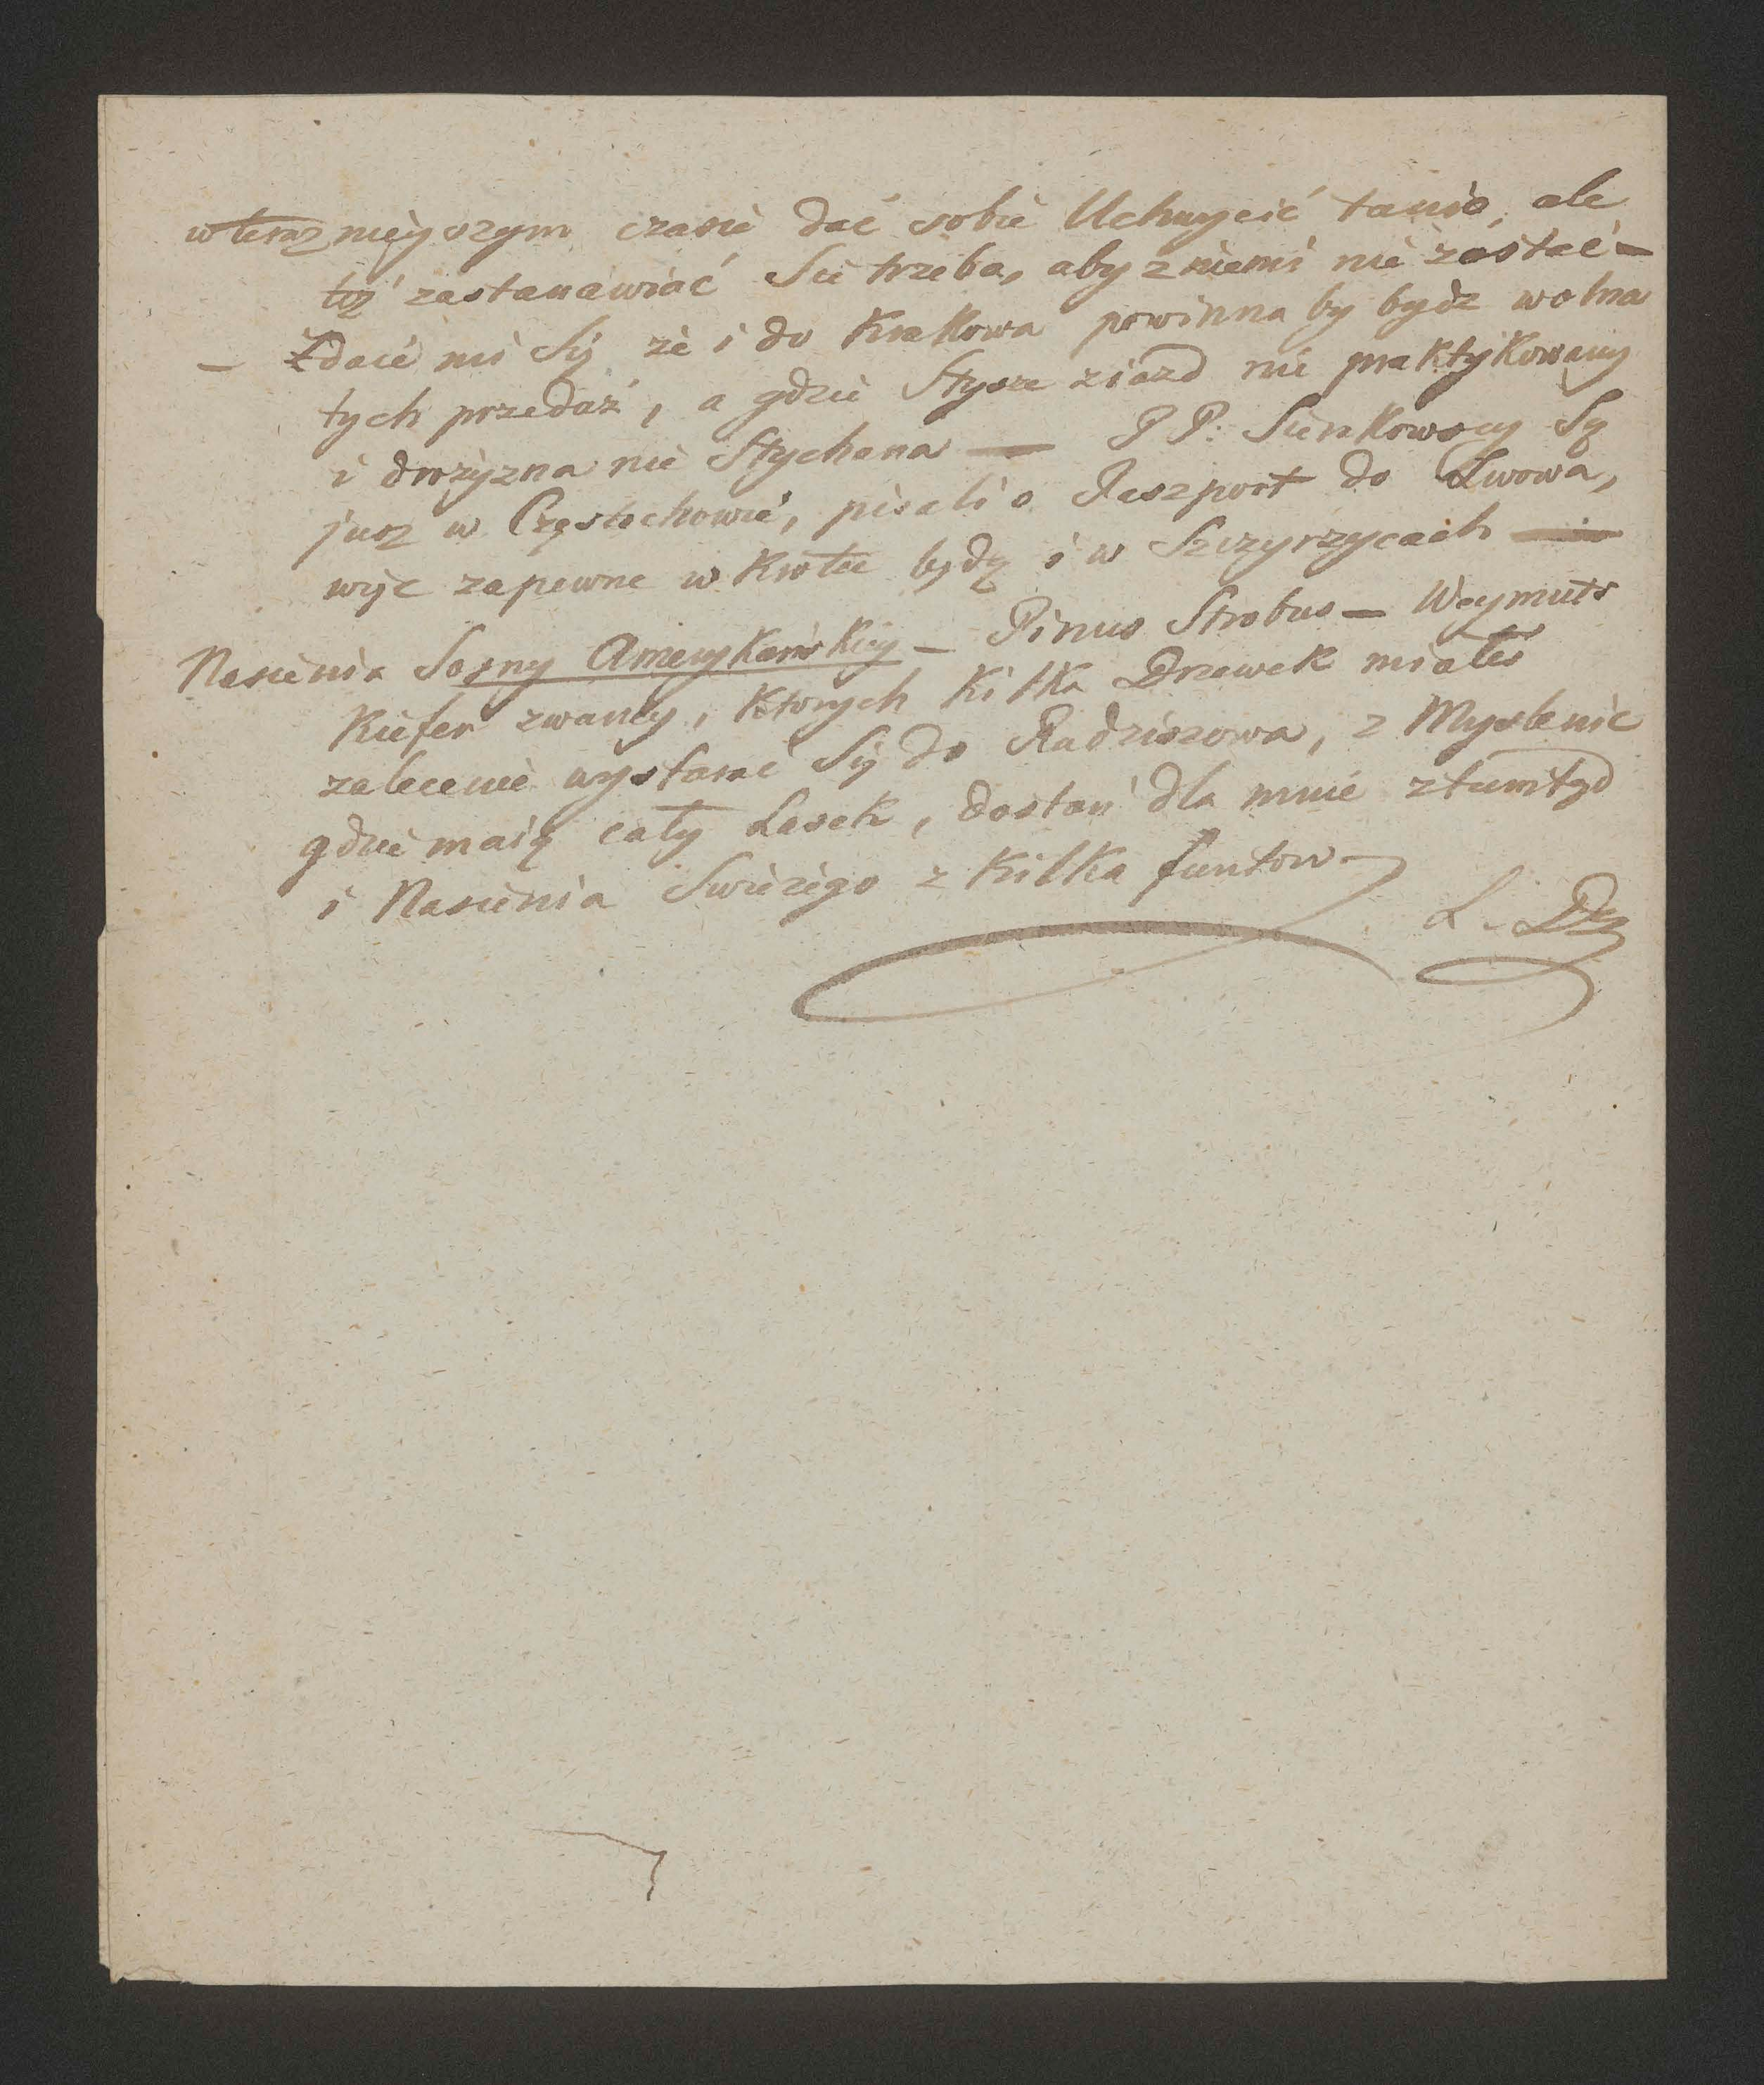 w teraznieyszym czasie dać sobie Uchwycić tanio, ale
toż zastanawiać Sie trzeba, aby z niemi nie zostać —
— Zdaie mi Się że i do Krakowa powinna by bydz wolna
tych przedaż, a gdzie Słysze ziazd nie praktykowany
i drożyzna nie Słychana — PP: Sierakowscy Są
iusz w Częstochowie, pisali o Paszport do Lwowa,
więc zapewne w krotce będą i w Szczyrzycach —
Nasienia Sosny Amerykańskiey — Pinus Strobus — Weymuts
Kiefer zwaney, ktorych kilka Drzewek miałeś
zalecenie wystarać Się do Radziszowa, z Myslenic
gdzie maią cały Lasek, dostań dla mnie ztamtąd
i Nasienia Swieżego z kilka funtow
L. Dk